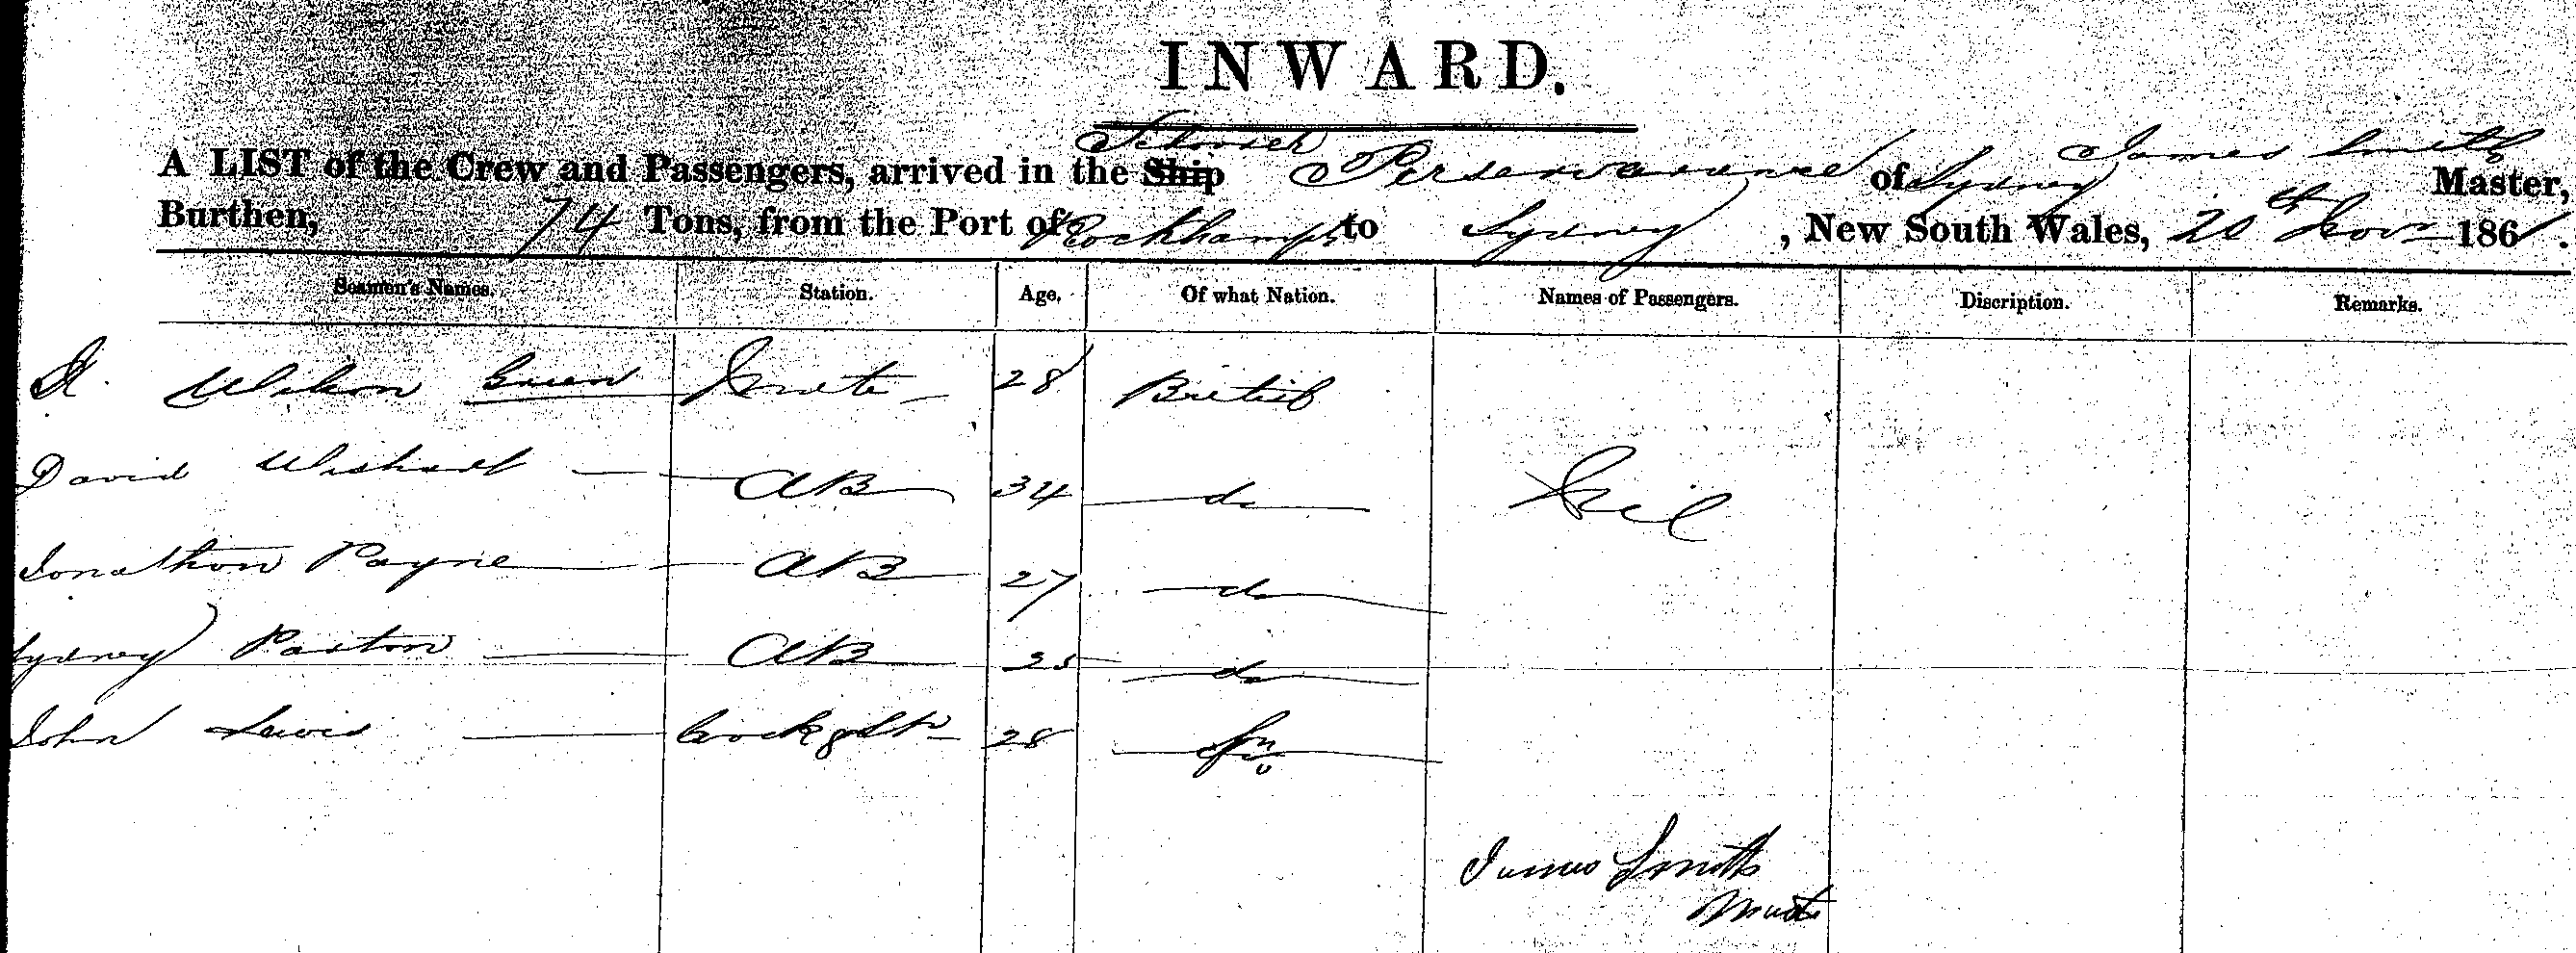 INWARD.
Schooner
A LIST of the Crew and Passengers, arrived in the Ship Perseverance of Sydney James Smith Master,
Burthen, 74 Tons, from the Port of Rockhampt to Sydney, New South Wales, 20th Novr 1861.
Seamen's Names. Station. Age. Of what Nation. Names of Passengers. Discription. Remarks.
Wilson Green Mate 28 British
David Wishart AB 34 do Nil
Jonathon Payne AB 27 do
Sydney Paxton AB 25 do
John Lewis Cook & Std 28
James Smith
Master